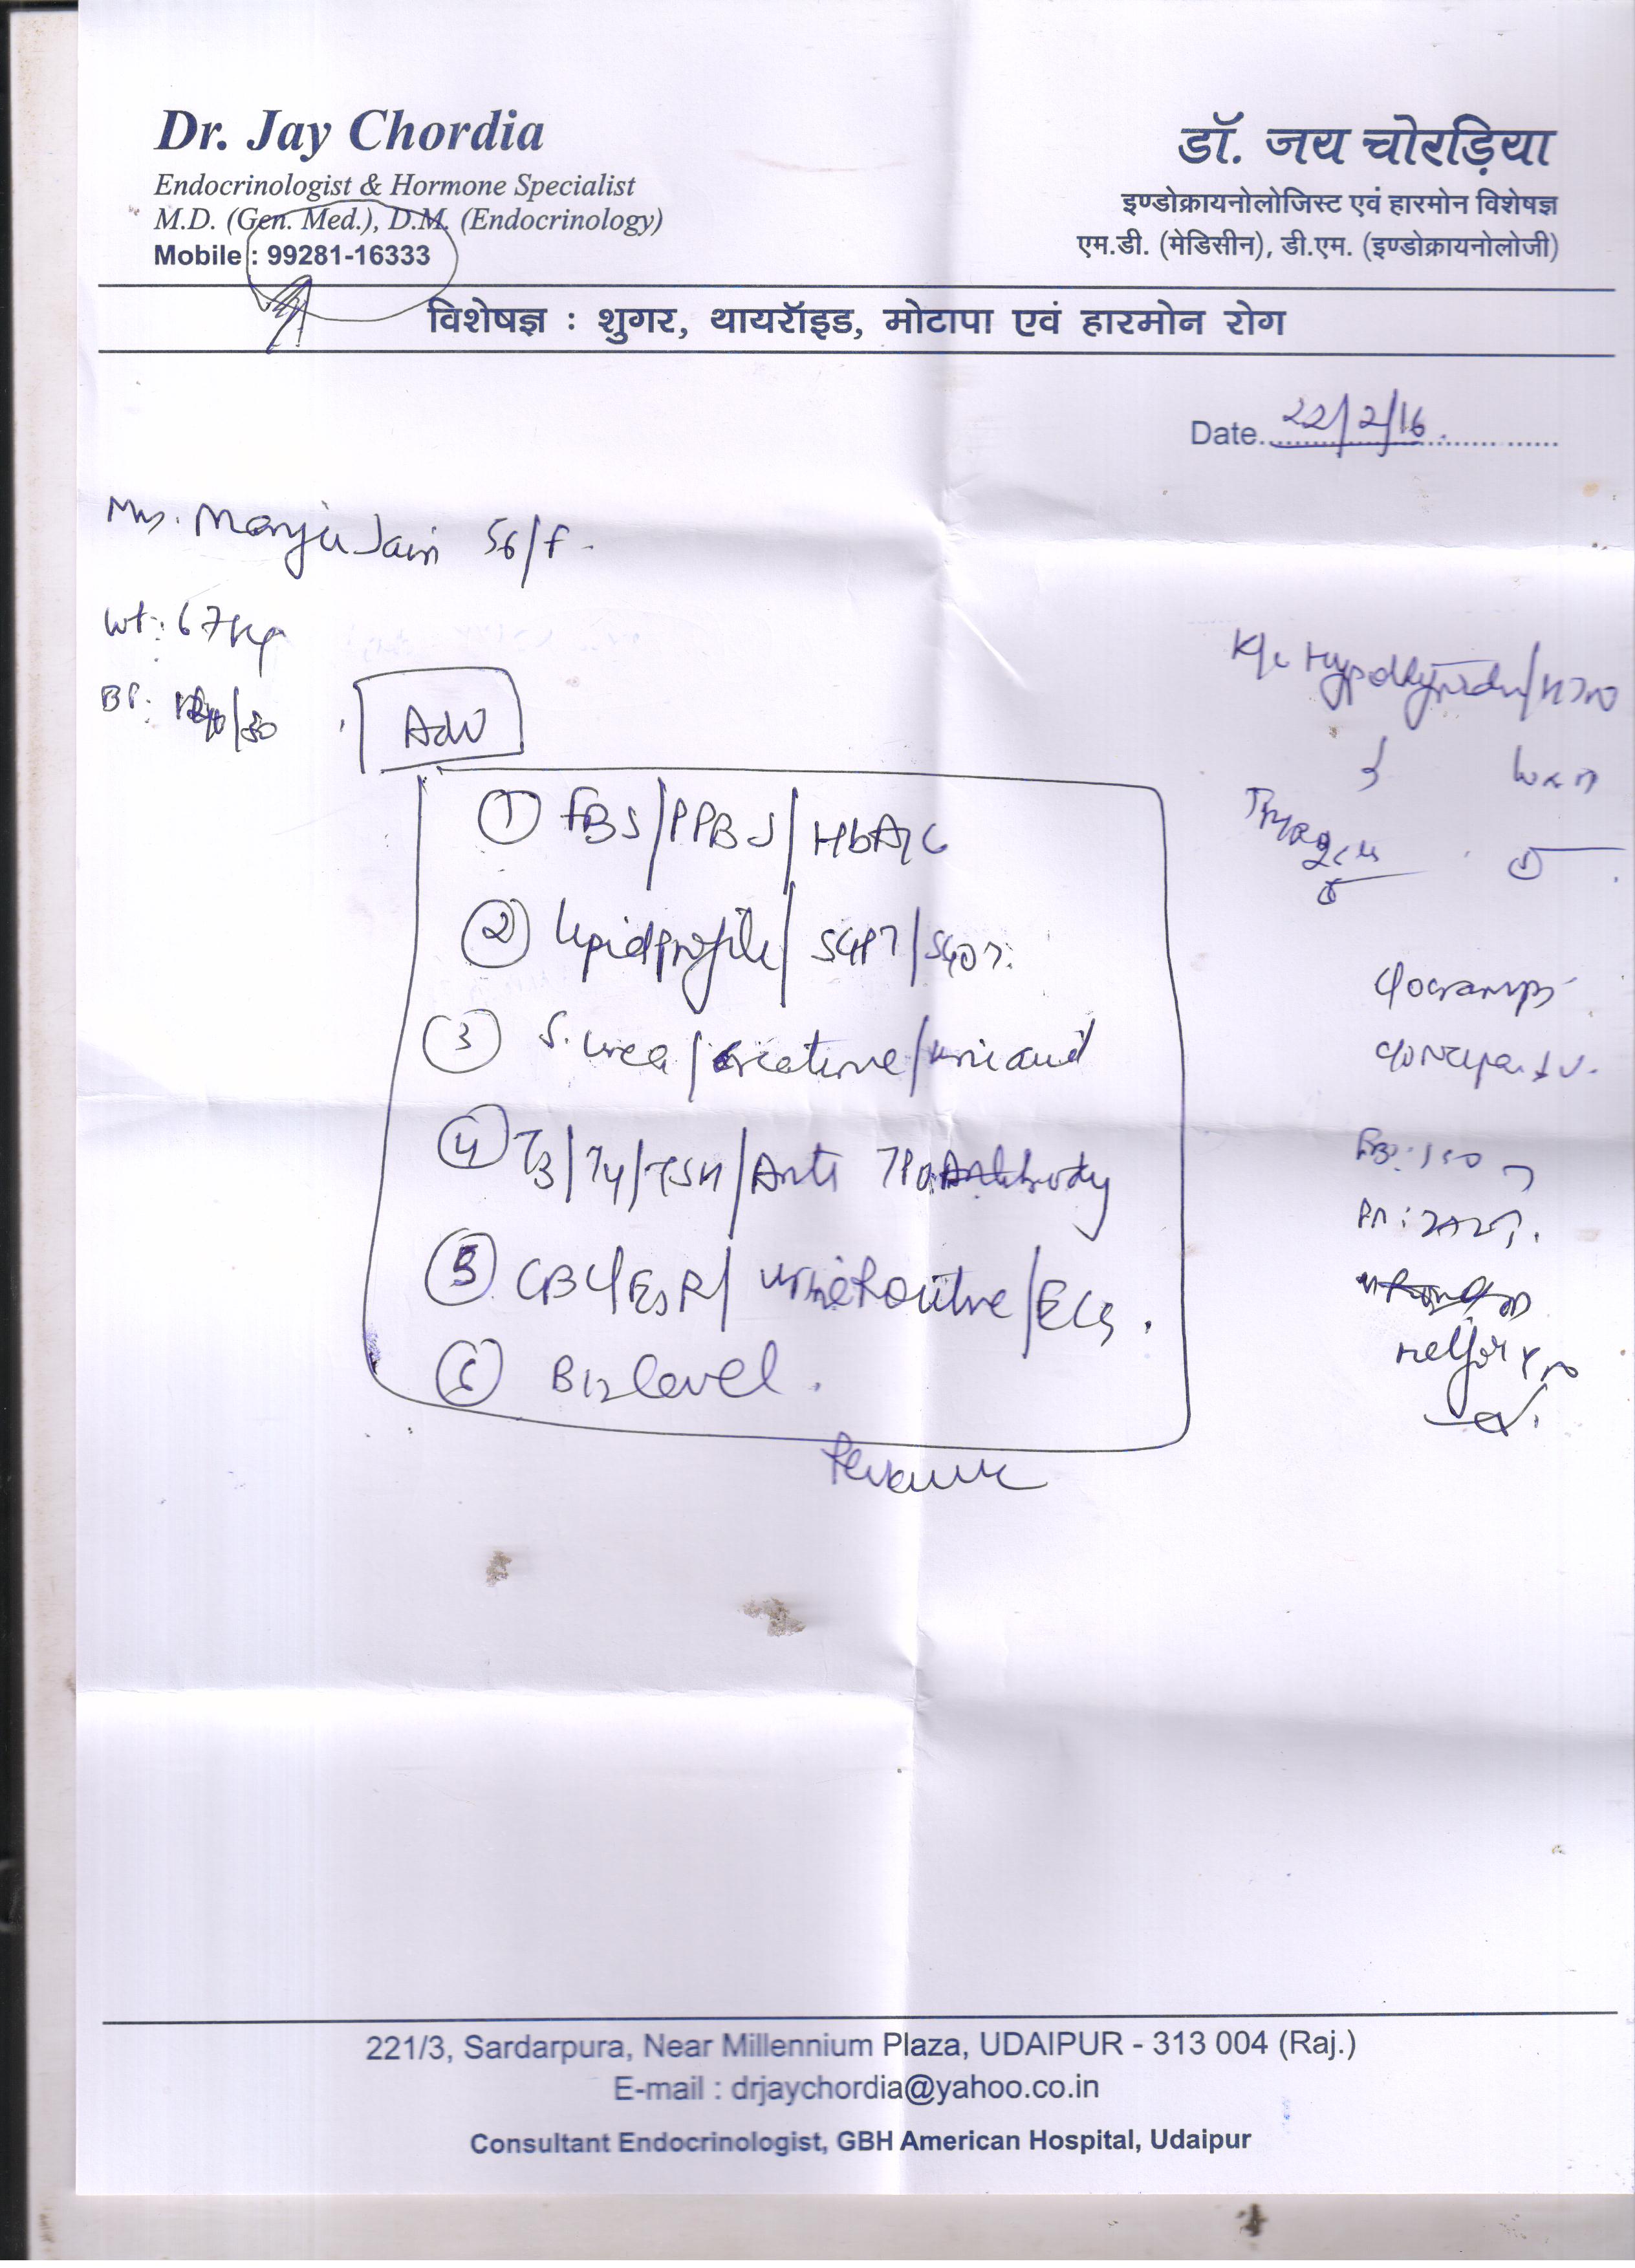 Dr. Jay Chordia
Endocrinologist & Hormone Specialist
M.D. (Gen. Med.), D.M. (Endocrinology)
Mobile : 99281-16333
डॉ. जय चोरड़िया
इण्डोक्रायनोलोजिस्ट एवं हारमोन विशेषज्ञ
एम.डी. (मेडिसीन), डी.एम. (इण्डोक्रायनोलोजी)
विशेषज्ञ : शुगर, थायरॉइड, मोटापा एवं हारमोन रोग
Date. 22/2/16.
Mrs. Manju Jain 56/F.
Wt: 67kg
BP:
K/c Hypothyroidism/HTN
Adv
① FBS/PPBS/HbA1C
② lipid profile/SGPT/SGOT.
③ S. urea/creatine/uric acid
④ T3/T4/TSH/Anti TPO Antibody
⑤ CBC/ESR/urine Routine/ECG.
⑥ B12 level.
c/o cramps
c/o
221/3, Sardarpura, Near Millennium Plaza, UDAIPUR - 313 004 (Raj.)
E-mail : drjaychordia@yahoo.co.in
Consultant Endocrinologist, GBH American Hospital, Udaipur